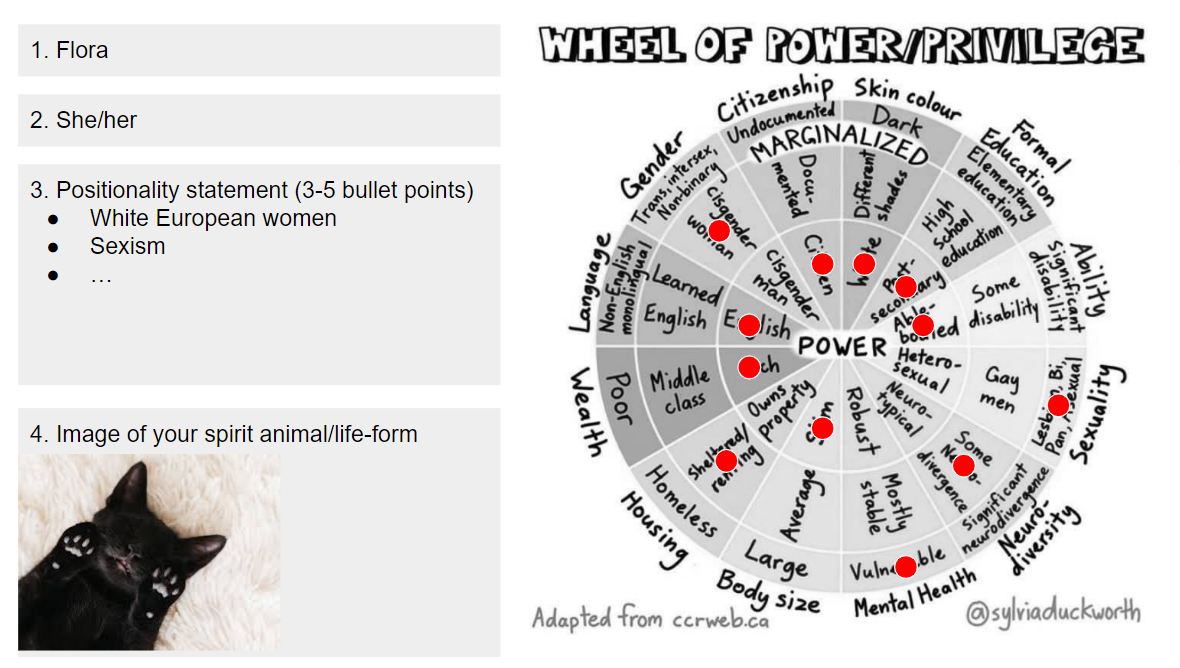 1. Flora
2. She/her
3. Positionality statement (3-5 bullet points)
● White European women
● Sexism
● …
4. Image of your spirit animal/life-form
WHEEL OF POWER/PRIVILEGE
Citizenship
Undocumented
Docu-
mented
Citizen
Skin colour
Dark
Different
shades
White
Formal
Education
Elementary
education
High
School
education
Post-
secondary
Ability
Significant
disability
Some
disability
Able-
bodied
Sexuality
Lesbian, Bi,
Pan, Asexual
Gay
men
Hetero-
sexual
Neuro-
diversity
Significant
neurodivergence
Some
Neuro-
divergence
Neuro-
typical
Mental Health
Vulnerable
Mostly
stable
Robust
Body size
Large
Average
Slim
Housing
Homeless
Sheltered/
renting
Owns
property
Wealth
Poor
Middle
class
Rich
Language
Non-English
monolingual
Learned
English
English
Gender
Trans, intersex,
Non-binary
Cisgender
woman
cisgender
man
MARGINALIZED
POWER
Adapted from ccrweb.ca
@sylviaduckworth